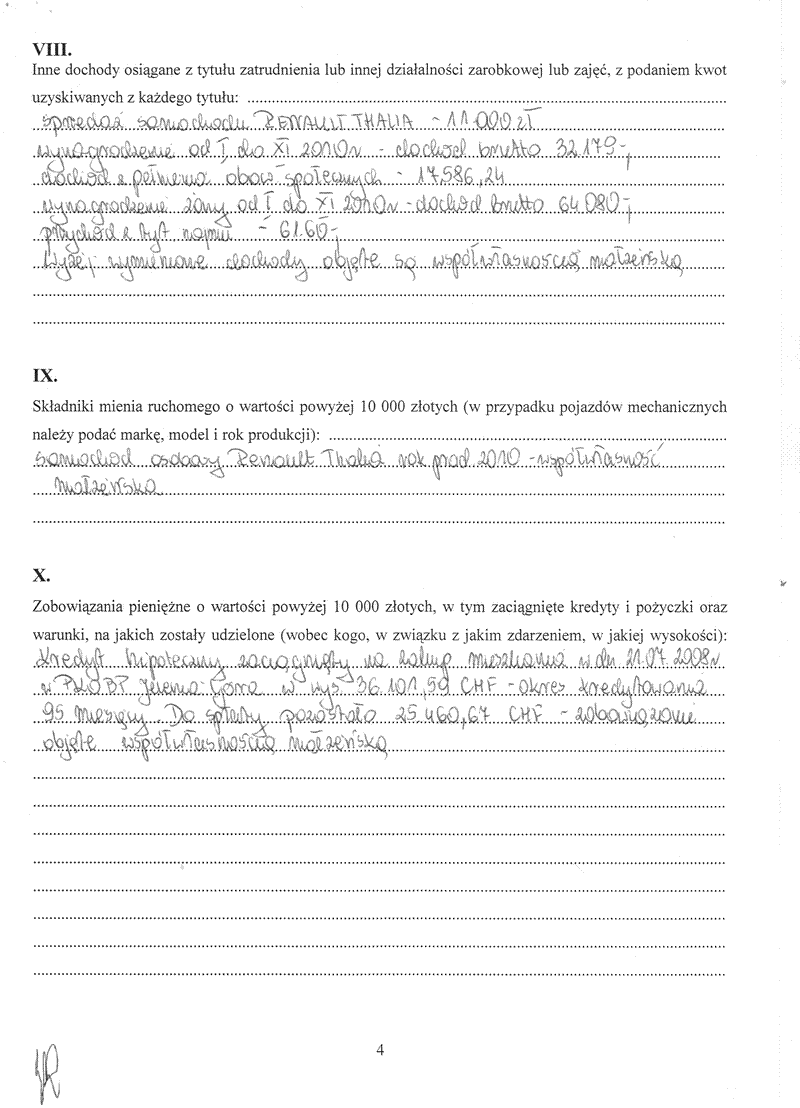 VIII.
Inne dochody osiągane z tytułu zatrudnienia lub innej działalności zarobkowej lub zajęć, z podaniem kwot
uzyskiwanych z każdego tytułu:
sprzedaż samochodu RENAULT THALIA - 11 000 zł
wynagrodzenie od I do XI 2010r - dochód brutto 32 179,-
dochód z pełnienia obow. społecznych - 17.586,24
wynagrodzenie żony od I do XI 2010r - dochód brutto 64 080,-
przychód z tyt. najmu - 61.60,-
Wyżej wymienione dochody objęte są współwłasnością małżeńską
IX.
Składniki mienia ruchomego o wartości powyżej 10 000 złotych (w przypadku pojazdów mechanicznych
należy podać markę, model i rok produkcji):
samochód osobowy Renault Thalia rok prod. 2010 - współwłasność
małżeńska
X.
Zobowiązania pieniężne o wartości powyżej 10 000 złotych, w tym zaciągnięte kredyty i pożyczki oraz
warunki, na jakich zostały udzielone (wobec kogo, w związku z jakim zdarzeniem, w jakiej wysokości):
Kredyt hipoteczny zaciągnięty na zakup mieszkania w dn. 21.07.2008r
w PKOBP Jelenia Góra w wys 36.101,59 CHF - okres kredytowania
95 miesięcy. Do spłaty pozostało 25.460,67 CHF - zobowiązanie
objęte współwłasnością małżeńską
4